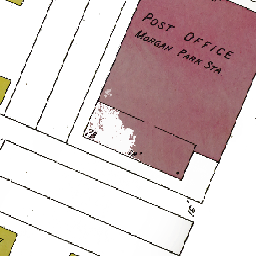 POST OFFICE
MORGAN PARK STA